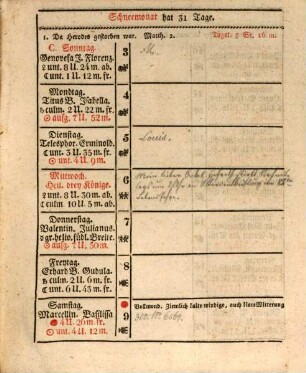 Schneemonat hat 31 Tage.
1. Da Herodes gestorben war. Matth. 2.
Tagsl. 8 St. 16 m.
C. Sonntag.
Genovefa J. Florenz.
2 unt. 8 U. 24 m. ab.
unt. 1 U. 12 m. fr.
3
Montag.
Titus B. Isabella.
culm. 2 U. 22 m. fr.
aufg. 7 U. 52 m.
4
Dienstag.
Telesphor. Erminold.
unt. 3 U. 35 m. fr.
unt. 4 U. 9 m.
5
Mittwoch.
Heil. drey Könige.
unt. 8 U. 30 m. ab.
culm. 10 U. 5 m. ab.
6
Donnerstag.
Valentin. Julianus.
gr. helio. südl. Breite.
aufg. 7 U. 50 m.
7
Freytag.
Erhard B. Gudula.
culm. 2 U. 6 m. fr.
unt. 6 U. 45 m. fr.
8
Samstag.
Marcellin. Basilissa
4 U. 26 m. fr.
unt. 4 U. 12 m.
9
Vollmond. Ziemlich kalte windige, auch klare Witterung